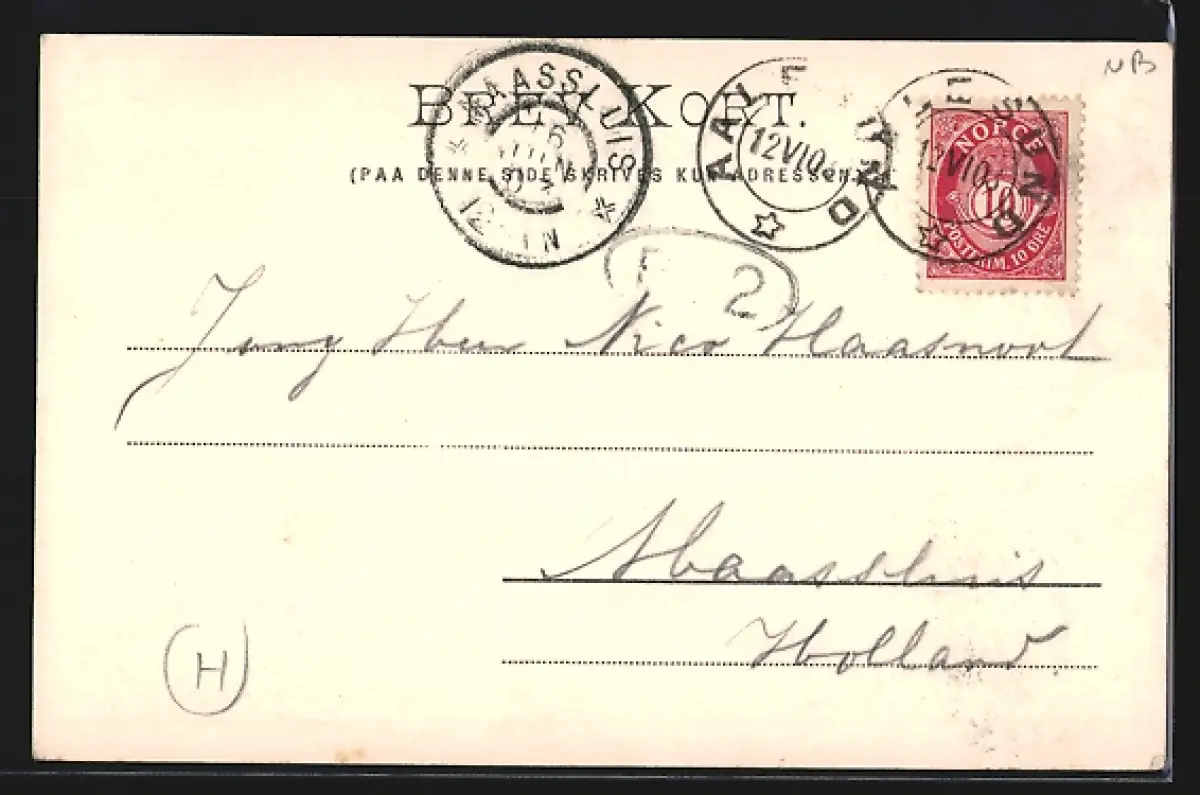 NB
BREV-KORT.
(PAA DENNE SIDE SKRIVES KUN ADRESSEN.)
MAASSLUIS
12-1N
AALESUND
12 VI 0
AALESUND
12 VI 0
NORGE
10
POSTFRIM. 10 ØRE
2
Jong Heer Nico Haasnoot
Maassluis
Holland
H